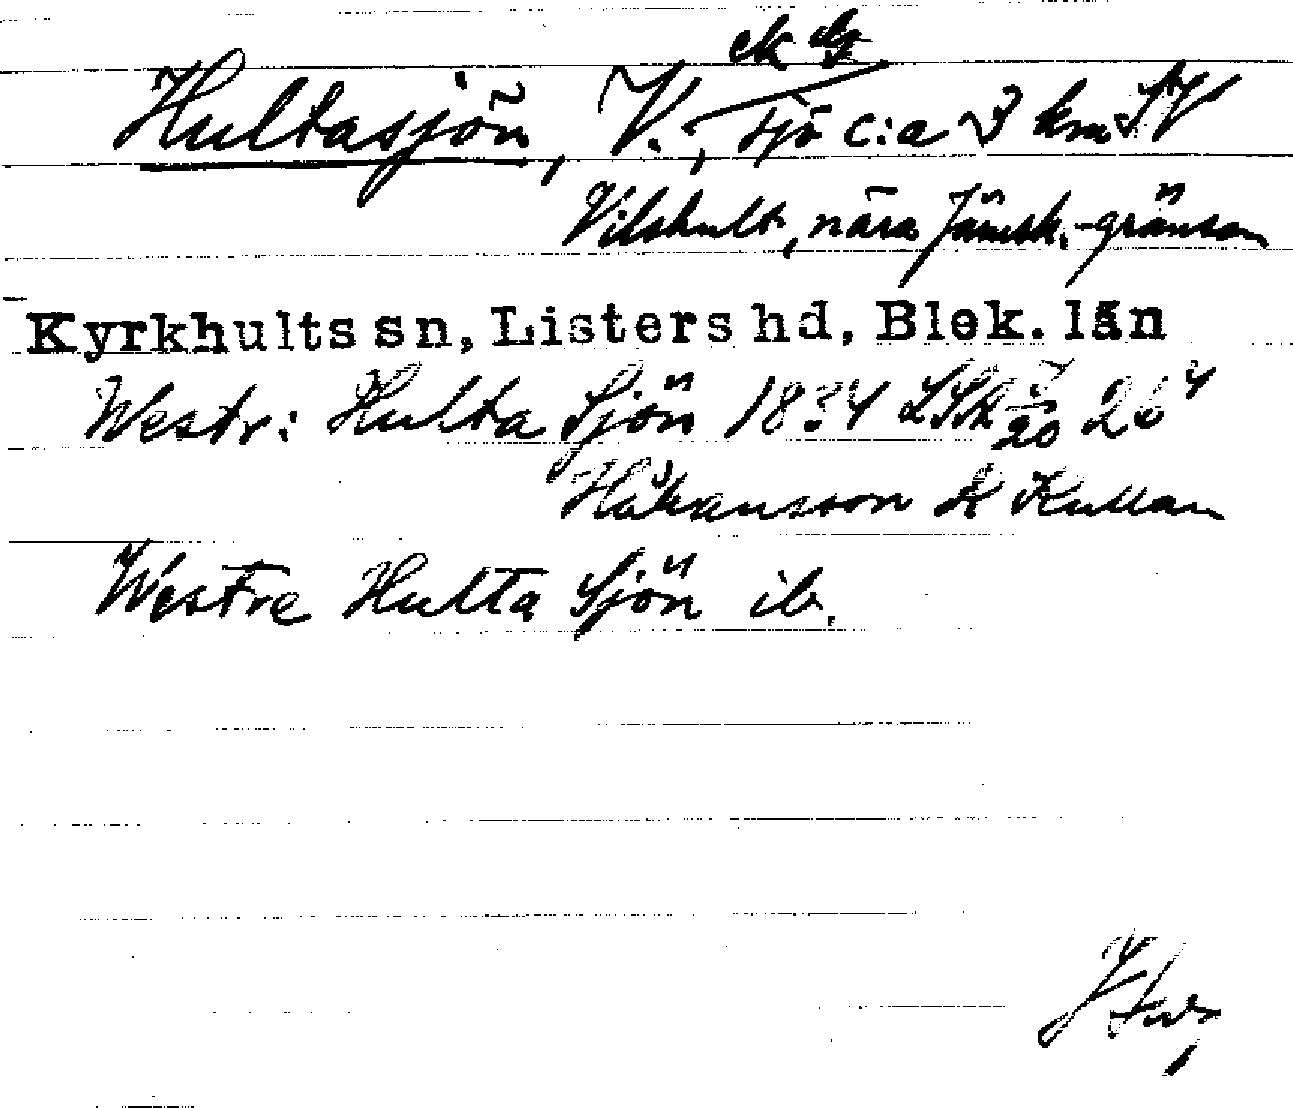 ek
Hultasjön, V., sjö c:a 3 km SV
Vilshult, nära Jämsh.-gränsen
Kyrkhults sn, Listers hd, Blek. län
Westr: Hulta Sjön 1834 LSA 26⁴
Håkansson K Kullan
Westre Hulta Sjön ib.